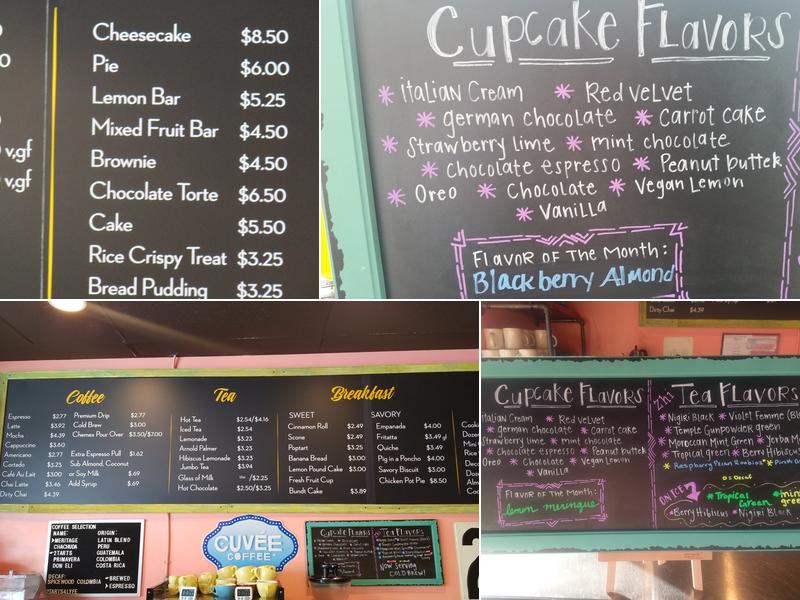 v,gf
v,gf
Cheesecake $8.50
Pie $6.00
Lemon Bar $5.25
Mixed Fruit Bar $4.50
Brownie $4.50
Chocolate Torte $6.50
Cake $5.50
Rice Crispy Treat $3.25
Bread Pudding $3.25
Cupcake Flavors
* italian Cream * Red velvet
* german chocolate * Carrot cake
* Strawberry lime * mint chocolate
* chocolate espresso * Peanut butter
* Oreo * Chocolate * Vegan Lemon
* Vanilla
Flavor of The Month:
Blackberry Almond
Coffee
Espresso $2.77
Latte $3.92
Mocha $4.39
Cappuccino $3.60
Americano $2.77
Cortado $3.23
Café Au Lait $3.00
Chai Latte $3.46
Dirty Chai $4.39
Premium Drip $2.77
Cold Brew $3.00
Chemex Pour Over $3.50/$7.00
Extra Espresso Pull $1.62
Sub Almond, Coconut
or Soy Milk $.69
Add Syrup $.69
Tea
Hot Tea $2.54/$4.16
Iced Tea $2.54
Lemonade $3.23
Arnold Palmer $3.23
Hibiscus Lemonade $3.23
Jumbo Tea $3.94
Glass of Milk /$2.25
Hot Chocolate $2.50/$3.25
Breakfast
SWEET
Cinnamon Roll $2.49
Scone $2.49
Poptart $3.25
Banana Bread $3.00
Lemon Pound Cake $3.00
Fresh Fruit Cup
Bundt Cake $3.89
SAVORY
Empanada $4.00
Fritatta $3.49 gf
Quiche $3.49
Pig in a Poncho $4.00
Savory Biscuit $3.00
Chicken Pot Pie $8.50
COFFEE SELECTION
NAME: ORIGIN:
MERITAGE LATIN BLEND
CHACHUDA PERU
STARTS GUATEMALA
PRIMAVERA COLOMBIA
DON ELI COSTA RICA
DECAF:
SPICEWOOD COLOMBIA
BREWED
ESPRESSO
CUVÉE
COFFEE
Cupcake Flavors
Tea Flavors
Now Serving
Cold Brew!
Dirty Chai $4.39
Cupcake Flavors
italian Cream * Red velvet
* german chocolate * Carrot cake
Strawberry lime * mint chocolate
* chocolate espresso * Peanut butter
Oreo * Chocolate * Vegan Lemon
* Vanilla
Flavor of The Month:
lemon meringue
Tea Flavors
* Nigiri Black * Violet Femme
* Temple Gunpowder green
* Moroccan Mint Green * Yerba
* Tropical green * Berry Hibiscus
ON ICE
* Tropical Green
* Berry Hibiscus * Nigiri Black